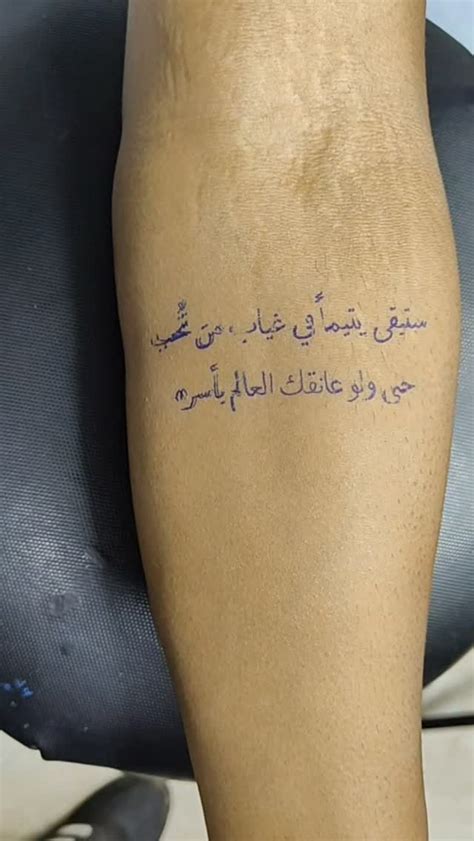 ستبقى يتيماً في غياب من تُحب
حتى ولو عانقك العالم بأسره